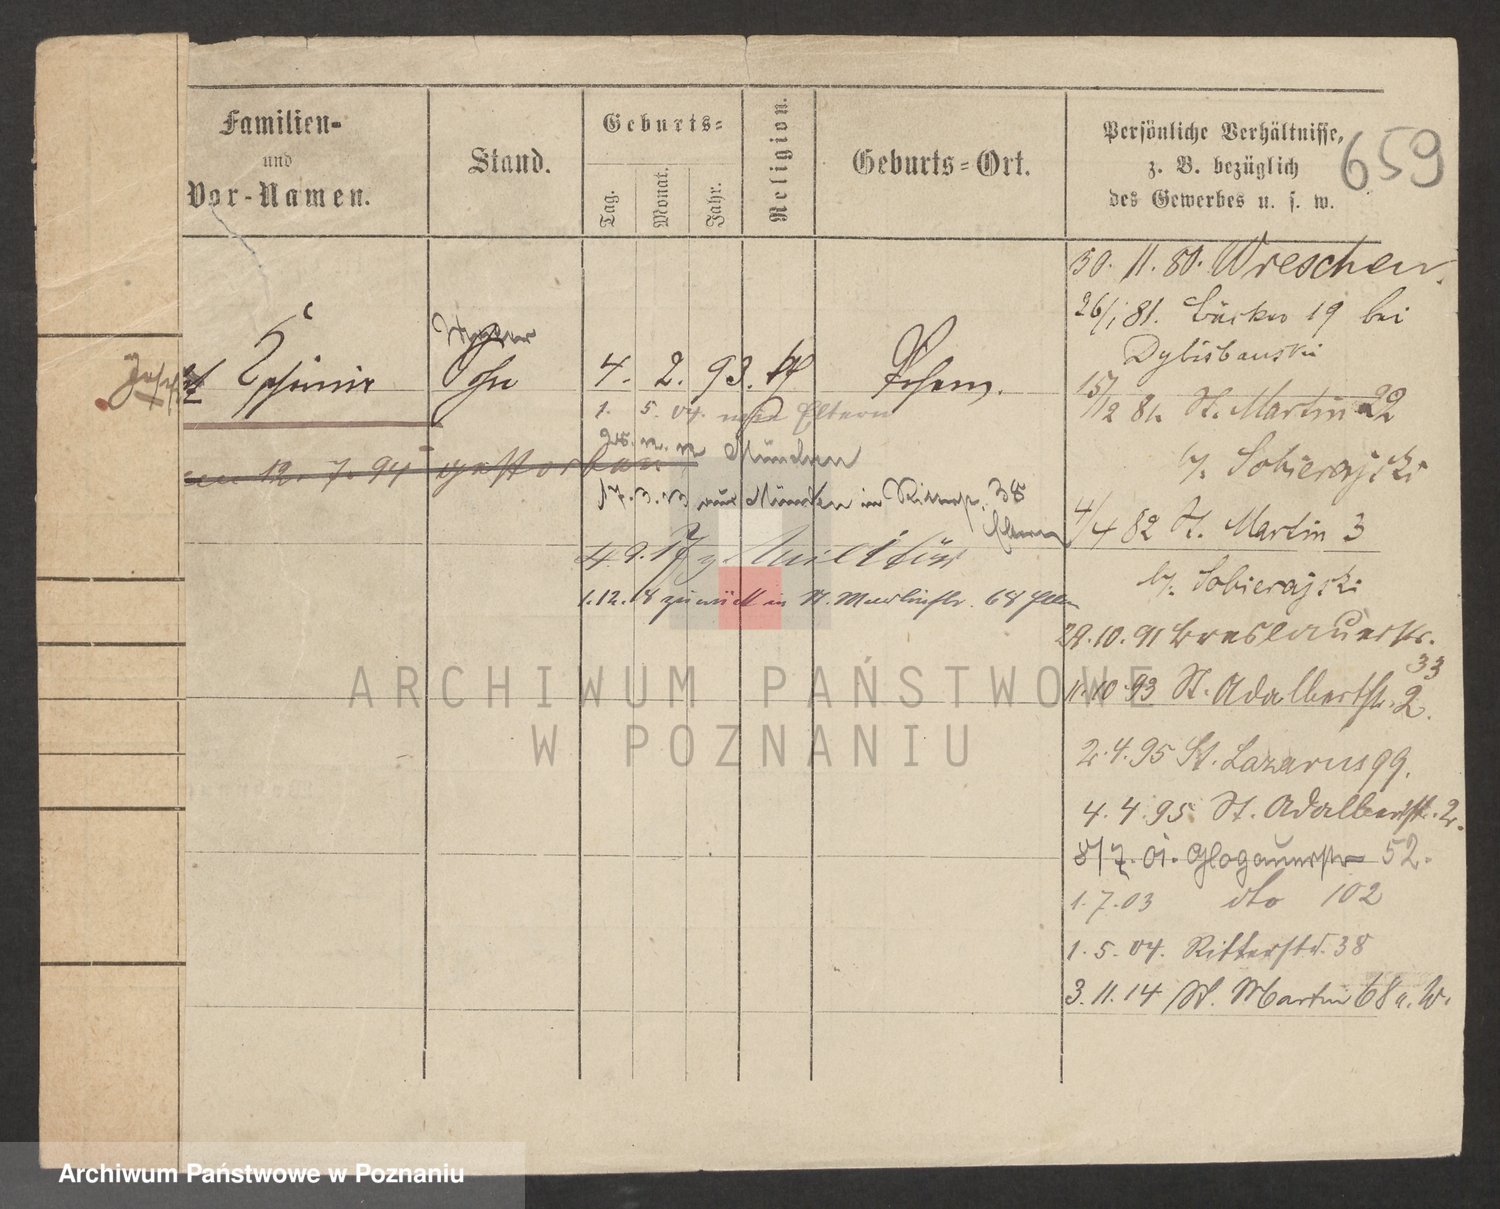 Familien-
und
Vor-Namen.
Stand.
Geburts-
Tag.
Monat.
Jahr.
Religion.
Geburts-Ort.
Persönliche Verhältnisse,
z. B. bezüglich
des Gewerbes u. s. w.
659
Sohn 4. 2. 93. Posen.
1. 5. 04. Eltern
12. 7. 94 gestorben
München
17. 3. 13 aus München in 38
Eltern
4. 9. 17 z. Militär
1.12.18 zurück in St. Martinstr. 68 Eltern
30. 11. 80. Wreschen.
26/1 81. Bäcker 19 bei
15/12 81. St. Martin 22
b/. Sobierajski
4/4 82 St. Martin 3
b/. Sobierajski
29.10.91 Breslauerstr.
33
11.10.93 St. Adalbertstr. 2.
2.4.95 St. Lazarus 99.
4.4.95 St. Adalbertstr. 2.
8/7.01. Glogauerstr 52.
1.7.03 dto 102
1.5.04. Ritterstr. 38
3.11.14 St. Martin 68 a. W.
ARCHIWUM PAŃSTWOWE
W POZNANIU
Archiwum Państwowe w Poznaniu